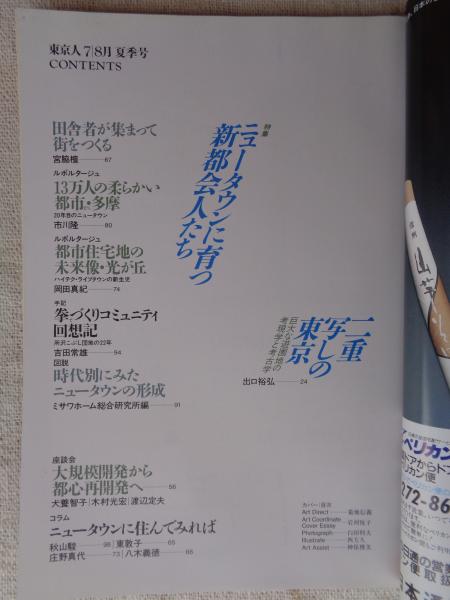 東京人 7|8月 夏季号
CONTENTS
特集
ニュータウンに育つ
新都会人たち
田舎者が集まって
街をつくる
宮脇檀――67
ルポルタージュ
13万人の柔らかい
都市・多摩
20年目のニュータウン
市川隆――80
ルポルタージュ
都市住宅地の
未来像・光が丘
ハイテク・ライブタウンの新生児
岡田真紀――74
手記
拳づくりコミュニティ
回想記
所沢こぶし団地の22年
吉田常雄――94
図説
時代別にみた
ニュータウンの形成
ミサワホーム総合研究所編――91
二重
写しの
東京
巨大な遊園地の
考現学と考古学
出口裕弘――24
座談会
大規模開発から
都心再開発へ――56
犬養智子|木村光宏|渡辺定夫
コラム
ニュータウンに住んでみれば
秋山駿――98|東敦子――65
庄野真代――73|八木義徳――66
カバー|目次
Art Direct――菊地信義
Art Coordinate
Cover Essay――岩村悦子
Photograph――白田利夫
Illustrate――西方久
Art Assist――神保博美
ペリカン
ドアからドア
リカン便
272-86
日通の営業
便取扱
本通